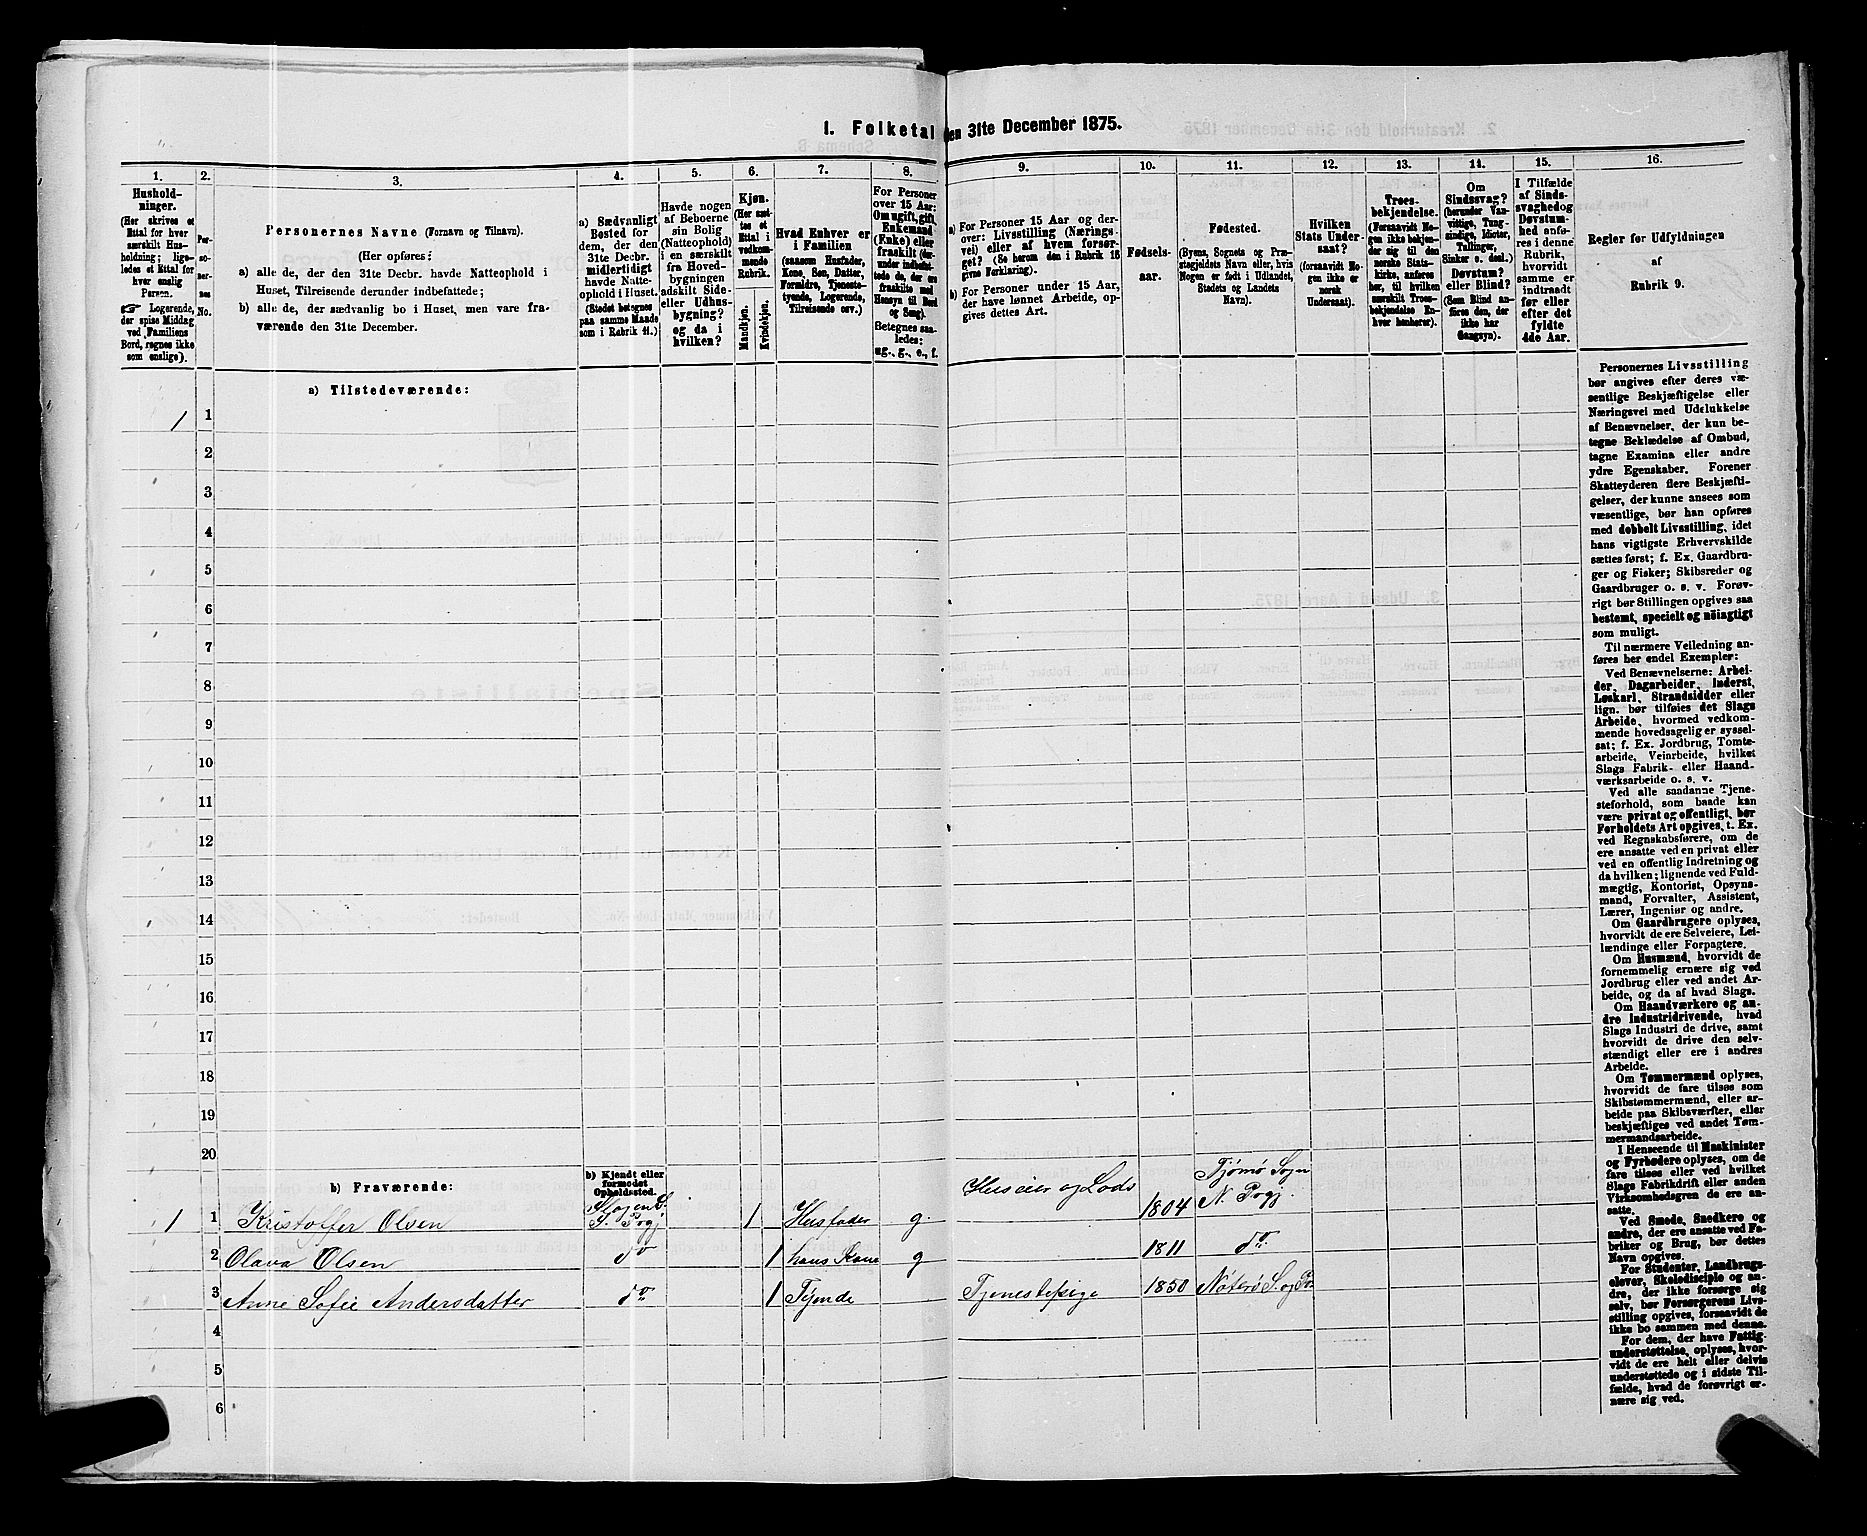 1. Folketal den 31te December 1875.
1.
Hushold-
ninger.
(Her skrives et
Ettal for hver
særskilt Hus-
holdning; lige-
ledes et Ettal for
hver enslig
Person.
☞ Logerende,
der spise Middag
ved Familiens
Bord, regnes ikke
som enslige).
2.
Per-
so-
ner-
nes
No.
3.
Personernes Navne (Fornavn og Tilnavn).
(Her opføres:
a) alle de, der den 31te Decbr. havde Natteophold i
Huset, Tilreisende derunder indbefattede;
b) alle de, der sædvanlig bo i Huset, men vare fra-
værende den 31te December.
4.
a) Sædvanligt
Bosted for
dem, der den
31te Decbr.
midlertidigt
havde Natte-
ophold i Huset.
(Stedet betegnes
paa samme Maade
som i Rubrik 11.)
5.
Havde nogen
af Beboerne
sin Bolig
(Natteophold)
i en særskilt
fra Hoved-
bygningen
adskilt Side-
eller Udhus-
bygning?
og da i
hvilken?
6.
Kjøn.
(Her sæt-
tes et
Ettal i
vedkom-
mende
Rubrik.
Mandkjøn.
Kvindekjøn.
7.
Hvad Enhver er
i Familien
(saasom Husfader,
Kone, Søn, Datter,
Forældre, Tjeneste-
tyende, Logerende,
Tilreisende osv.)
8.
For Personer
over 15 Aar:
Om ugift, gift,
Enkemand
(Enke) eller
fraskilt (der-
under indbefat-
tede de, der ere
fraskilte med
Hensyn til Bord
og Seng).
Betegnes saa-
ledes:
ug., g., e., f.
9.
a) For Personer 15 Aar og der-
over: Livsstilling (Nærings-
vei) eller af hvem forsør-
get? (Se herom den i Rubrik 16
givne Førklaring).
b) For Personer under 15 Aar,
der have lønnet Arbeide, op-
gives dettes Art.
10.
Fødsels-
aar.
11.
Fødested.
(Byens, Sognets og Præ-
stegjeldets Navn eller, hvis
Nogen er født i Udlandet,
Stedets og Landets
Navn).
12.
Hvilken
Stats Under-
saat?
(forsaavidt No-
gen ikke er
norsk
Undersaat).
13.
Troes-
bekjendelse.
(Forsaavidt No-
gen ikke bekjen-
der sig til den
norske Stats-
kirke, anføres
her, til hvilken
særskilt Troes-
bekjendelse En-
hver henhører).
14.
Om
Sindssvag?
(herunder Van-
vittige, Tung-
sindige, Idioter,
Tullinger,
Sinker o. desl.)
Døvstum?
eller Blind?
(Som Blind an-
føres den, der
ikke har
Gangsyn).
15.
I Tilfælde
af Sinds-
svaghed og
Døvstum-
hed anfø-
res i denne
Rubrik,
hvorvidt
samme er
indtraadt
før eller
efter det
fyldte
4de Aar.
16.
Regler for Udfyldningen
af
Rubrik 9.
a) Tilstedeværende:
1 1
2
3
4
5
6
7
8
9
10
11
12
13
14
15
16
17
18
19
20
Personernes Livsstilling
bør angives efter deres væ-
sentlige Beskjæftigelse eller
Næringsvei med Udelukkelse
af Benævnelser, der kun be-
tegne Beklædelse af Ombud,
tagne Examina eller andre
ydre Egenskaber. Forener
Skatteyderen flere Beskjæfti-
gelser, der kunne ansees som
væsentlige, bør han opføres
med dobbelt Livsstilling, idet
hans vigtigste Erhvervskilde
sættes først; f. Ex. Gaardbru-
ger og Fisker; Skibsreder og
Gaardbruger o. s. v. Forøv-
rigt bør Stillingen opgives saa
bestemt, specielt og nöiagtigt
som muligt.
Til nærmere Veiledning an-
føres her endel Exempler:
Ved Benævnelserne: Arbei-
der, Dagarbeider, Inderst,
Løskarl, Strandsidder eller
lign. bør tilføies det Slags
Arbeide, hvormed vedkom-
mende hovedsagelig er syssel-
sat; f. Ex. Jordbrug, Tomte-
arbeide, Veiarbeide, hvilket
Slags Fabrik- eller Haand-
værksarbeide o. s. v.
Ved alle saadanne Tjene-
steforhold, som baade kan
være privat og offentligt, bør
Forholdets Art opgives, t. Ex.
ved Regnskabsførere, om de
ere ansatte ved en privat eller
ved en offentlig Indretning og
da hvilken; lignende ved Fuld-
mægtig, Kontorist, Opsyns-
mand, Forvalter, Assistent,
Lærer, Ingeniør og andre.
Om Gaardbrugere oplyses,
hvorvidt de ere Selveiere, Lei-
lændinge eller Forpagtere.
Om Husmænd, hvorvidt de
fornemmelig ernære sig ved
Jordbrug eller ved andet Ar-
beide, og da af hvad Slags.
Om Haandværkere og an-
dre Industridrivende, hvad
Slags Industri de drive, samt
hvorvidt de drive den selv-
stændigt eller ere i andres
Arbeide.
Om Tømmermænd oplyses,
hvorvidt de fare tilsøs som
Skibstømmermænd, eller ar-
beide paa Skibsværfter, eller
beskjæftiges ved andet Tøm-
mermandsarbeide.
I Henseende til Maskinister
og Fyrbødere oplyses, om de
fare tilsøs eller ved hvilket
Slags Fabrikdrift eller anden
Virksomhedsgren de ere an-
satte.
Ved Smede, Snedkere og
andre, der ere ansatte ved Fa-
briker og Brug, bør dettes
Navn opgives.
For Studenter, Landbrugs-
elever, Skoledisciple og an-
dre, der ikke forsørge sig
selv, bør Forsørgerens Livs-
stilling opgives, forsaavidt de
ikke bo sammen med denne.
For dem, der have Fattig-
understøttelse, oplyses, hvor-
vidt de ere helt eller delvis
understøttede og i sidste Til-
fælde, hvad de forøvrigt er-
nære sig ved.
b) Fraværende:
b) Kjendt eller
formodet
Opholdssted.
1 1 Kristoffer Olsen Slagen S. S. Prgj 1 Husfader g. Huseier og Lods 1804 Tjömö Sogn N. Prgj.
2 Olava Olsen do 1 hans Kone g 1811 do
3 Anne Sofie Andersdatter do 1 Tjende Tjenestepige 1850 Nöterö S. og Pr
4
5
6